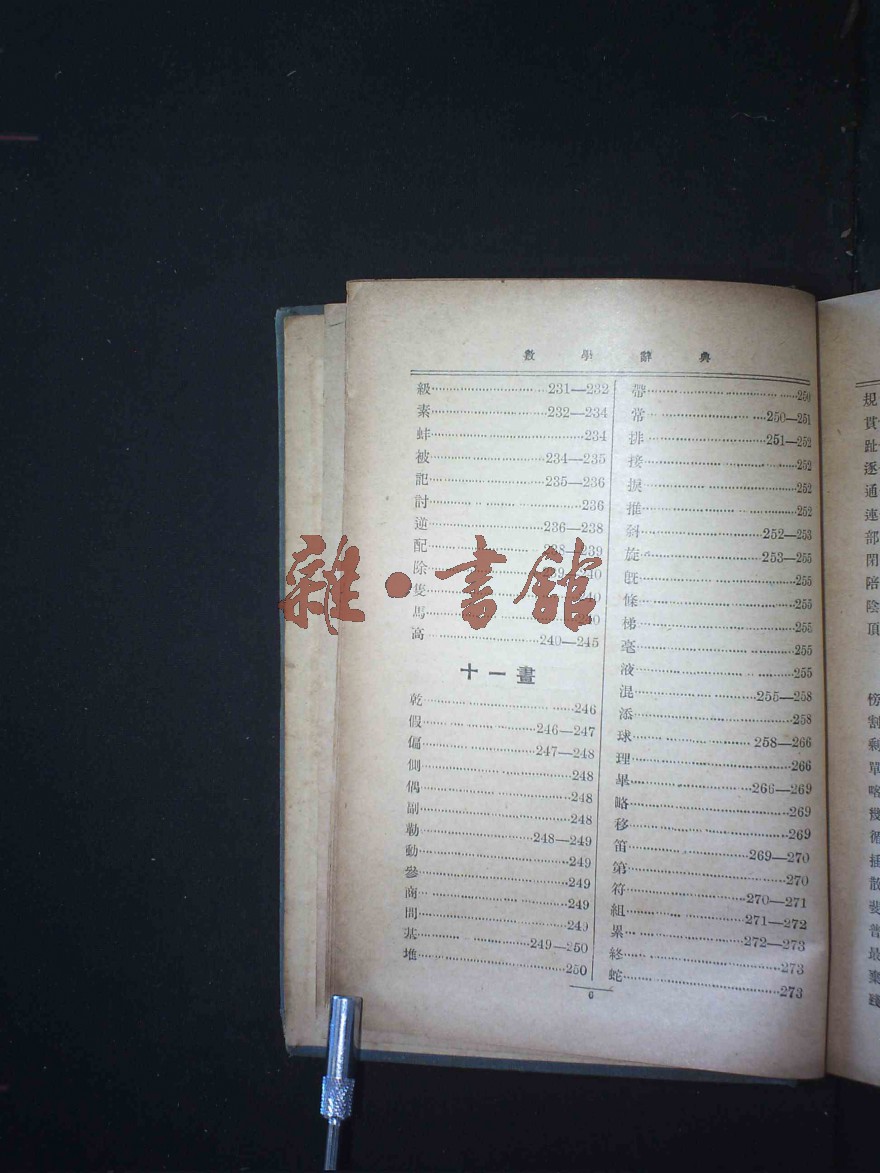 數學辭典
級 231—232
素 232—234
蚌 234
被 234—235
記 235—236
討 236
逆 236—238
配 238—239
除 239—240
隻 240
馬 240
高 240—245
十一畫
乾 246
假 246—247
偏 247—248
側 248
偶 248
副 248
勒 248—249
動 249
參 249
商 249
問 249
基 249—250
堆 250
帶 250
常 250—251
排 251—252
接 252
捩 252
推 252
斜 252—253
旋 253—255
旣 255
條 255
梯 255
毫 255
液 255
混 255—258
添 258
球 258—266
理 266
畢 266—269
略 269
移 269
笛 269—270
第 270
符 270—271
組 271—272
累 272—273
終 273
蛇 273
6
雜·書館
規
貫
趾
逐
通
連
部
閉
陪
陰
頂
傍
割
剩
單
喀
幾
循
插
散
斐
普
最
棄